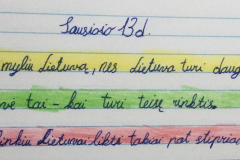 Sausio 13d.
myliu Lietuvą, nes Lietuva turi daug
tai - kai turi teisę rinktis.
linkiu Lietuvai likti tokiai pat stipriai